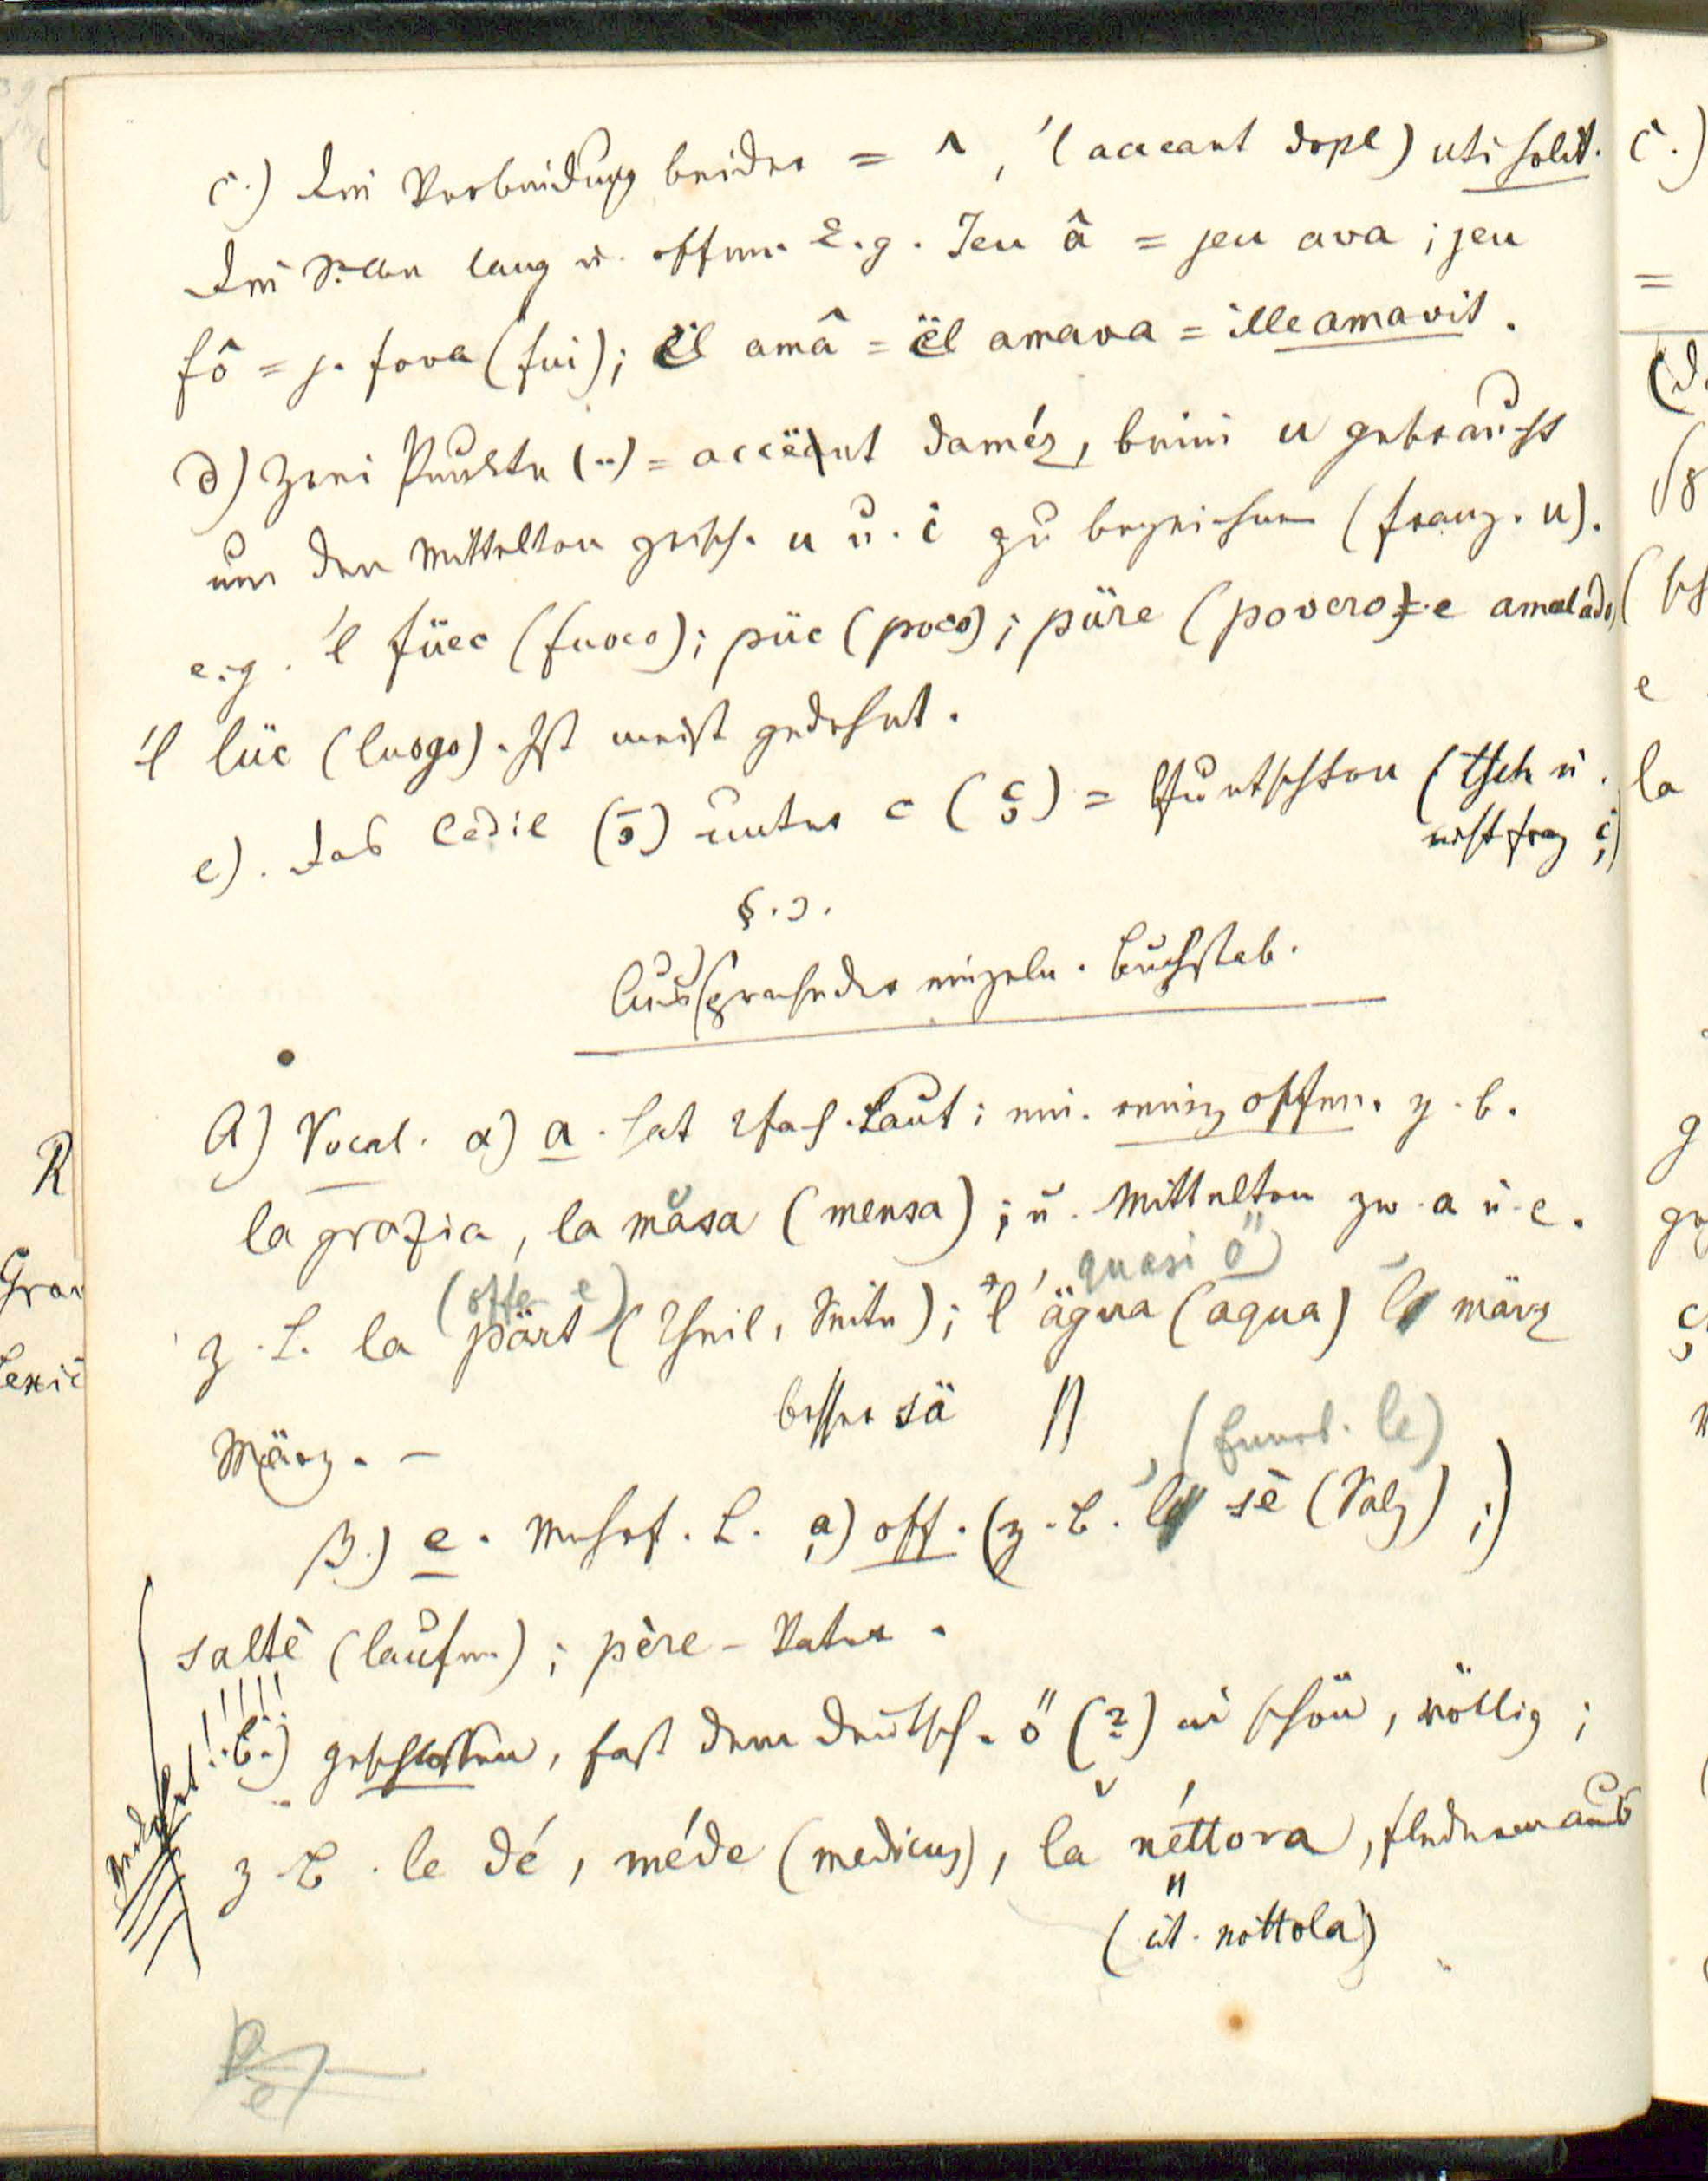 c.) Die Verbindung beider = ^, 'l acceant dopl) uti solit.
Die Silbe lang u. offen. E.g. Jeu â = jeu ava ; jeu
fô = j. fova (fui); ël amâ = ël amava = ille amavit.
d) Zwei Punkte (¨) = accënt daméz, beim u gebraucht
um den Mittelton zwisch. u u. i zu bezeichnen (franz. u).
e.g. 'l füec (fuoco); püc (poco); püre (povero) e amalado
'l lüc (luogo). Ist meist gedehnt.
e). Das Cedil (¸) unter c (ç) = Quetschton (tsch u.
nicht frz ç)
§.3.
Aussprache der einzeln. Buchstab.
A) Vocal. α) a. hat 2fach. Laut; ein. reinen offen. z.b.
la grazia, la măsa (mensa); u. Mittelton zw. a u. e.
(offe e) quasi ö)
z.B. la pärt (Theil, Seite); 'l ägua (aqua) 'l märz
März. –
besser sä
(funod. le)
β.) e. Mehrf. L. a) off. (z.B. 'l sè (Salz) ;)
saltè (laufen) ; père – Vater.
gedehnt !!!!!
b.) geschlossen, fast dem deutsch. ö (?) in schön, völlig ;
z.B. le dé, méde (medicus), la néttora, Fledermaus
(it. nottola)